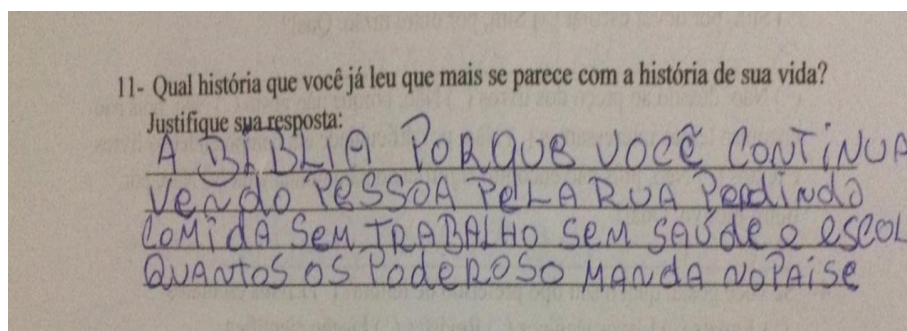 11- Qual história que você já leu que mais se parece com a história de sua vida?
Justifique sua resposta:
A BÍBLIA PORQUE VOCÊ CONTINUA
Vendo PESSOA PELA RUA Perdindo
COMIDA SEM TRABALHO SEM SAÚde e escol
QUANTOS OS PodeROSO MANDA NO PAISE